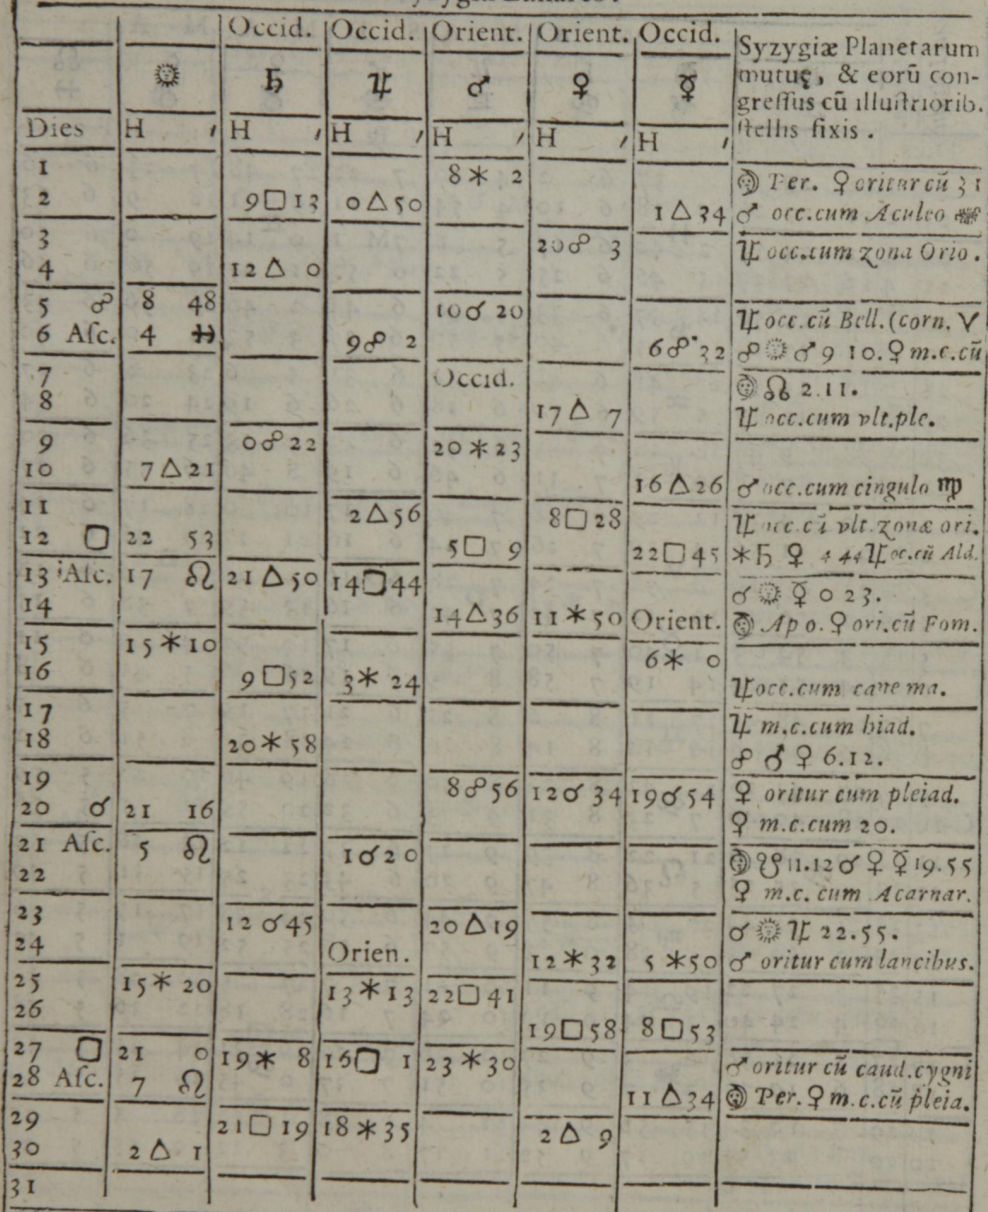 Occid. Occid. Orient. Orient. Occid. Syzygiæ Planetarum
☉ ♄ ♃ ♂ ♀ ☿ mutuę, & eorū con-
gressus cū illustriorib.
Dies H H ′ H ′ H ′ H ′ H ′ stellis fixis .
1 8⚹ 2 ☽ Per. ♀ oritur cū 31
2 9□13 0△50 1△34 ♂ occ.cum Aculeo
3 20☍ 3 ♃ occ.cum zona Orio .
4 12△ 0
5 ☍ 8 48 10☌ 20 ♃ occ.cū Bell. (corn. ♈
6 Asc. 4 9☍ 2 6☍32 ☍ ☉ ♂ 9 10. ♀ m.c.cū
7 Occid. ☽ ☊ 2.11.
8 17△ 7 ♃ occ.cum vlt.ple.
9 0☍22 20⚹23
10 7△21 16△26 ♂ occ.cum cingulo ♍
11 2△56 8□28 ♃ occ.cū vlt.zonæ ori.
12 □ 22 53 5□ 9 22□45 ⚹ ♄ ♀ 4 44 ♃ oc.cū Ald.
13 Asc. 17 ♌ 21△50 14□44 ☌ ☉ ☿ 0 23.
14 14△36 11⚹50 Orient. ☽ Apo. ♀ ori.cū Fom.
15 15⚹10 6⚹ 0
16 9□52 3⚹ 24 ♃ occ.cum cane ma.
17 ♃ m.c.cum hiad.
18 20⚹58 ☍ ♂ ♀ 6.12.
19 8☍56 12☌ 34 19☌54 ♀ oritur cum pleiad.
20 ☌ 21 16 ♀ m.c.cum 20.
21 Asc. 5 ♌ 1☌20 ☽ ☋ 11.12 ☌ ♀ ☿ 19.55
22 ♀ m.c. cum Acarnar.
23 12 ☌45 20△19 ☌ ☉ ♃ 22.55.
24 Orien. 12⚹32 5 ⚹50 ♂ oritur cum lancibus.
25 15⚹ 20 13⚹13 22□41
26 19□58 8□53
27 □ 21 0 19⚹ 8 16□ 1 23⚹30 ♂ oritur cū caud.cygni
28 Asc. 7 ♌ 11△34 ☽ Per. ♀ m.c.cū pleia.
29 21□19 18⚹35 2△ 9
30 2△ 1
31